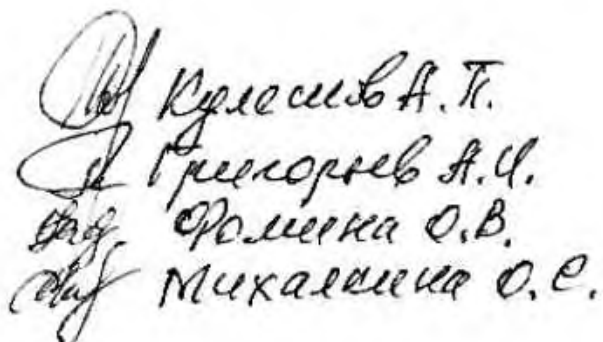 Кулешов А.П.
Григорьев А.И.
Фомина О.В.
Михалкина О.С.